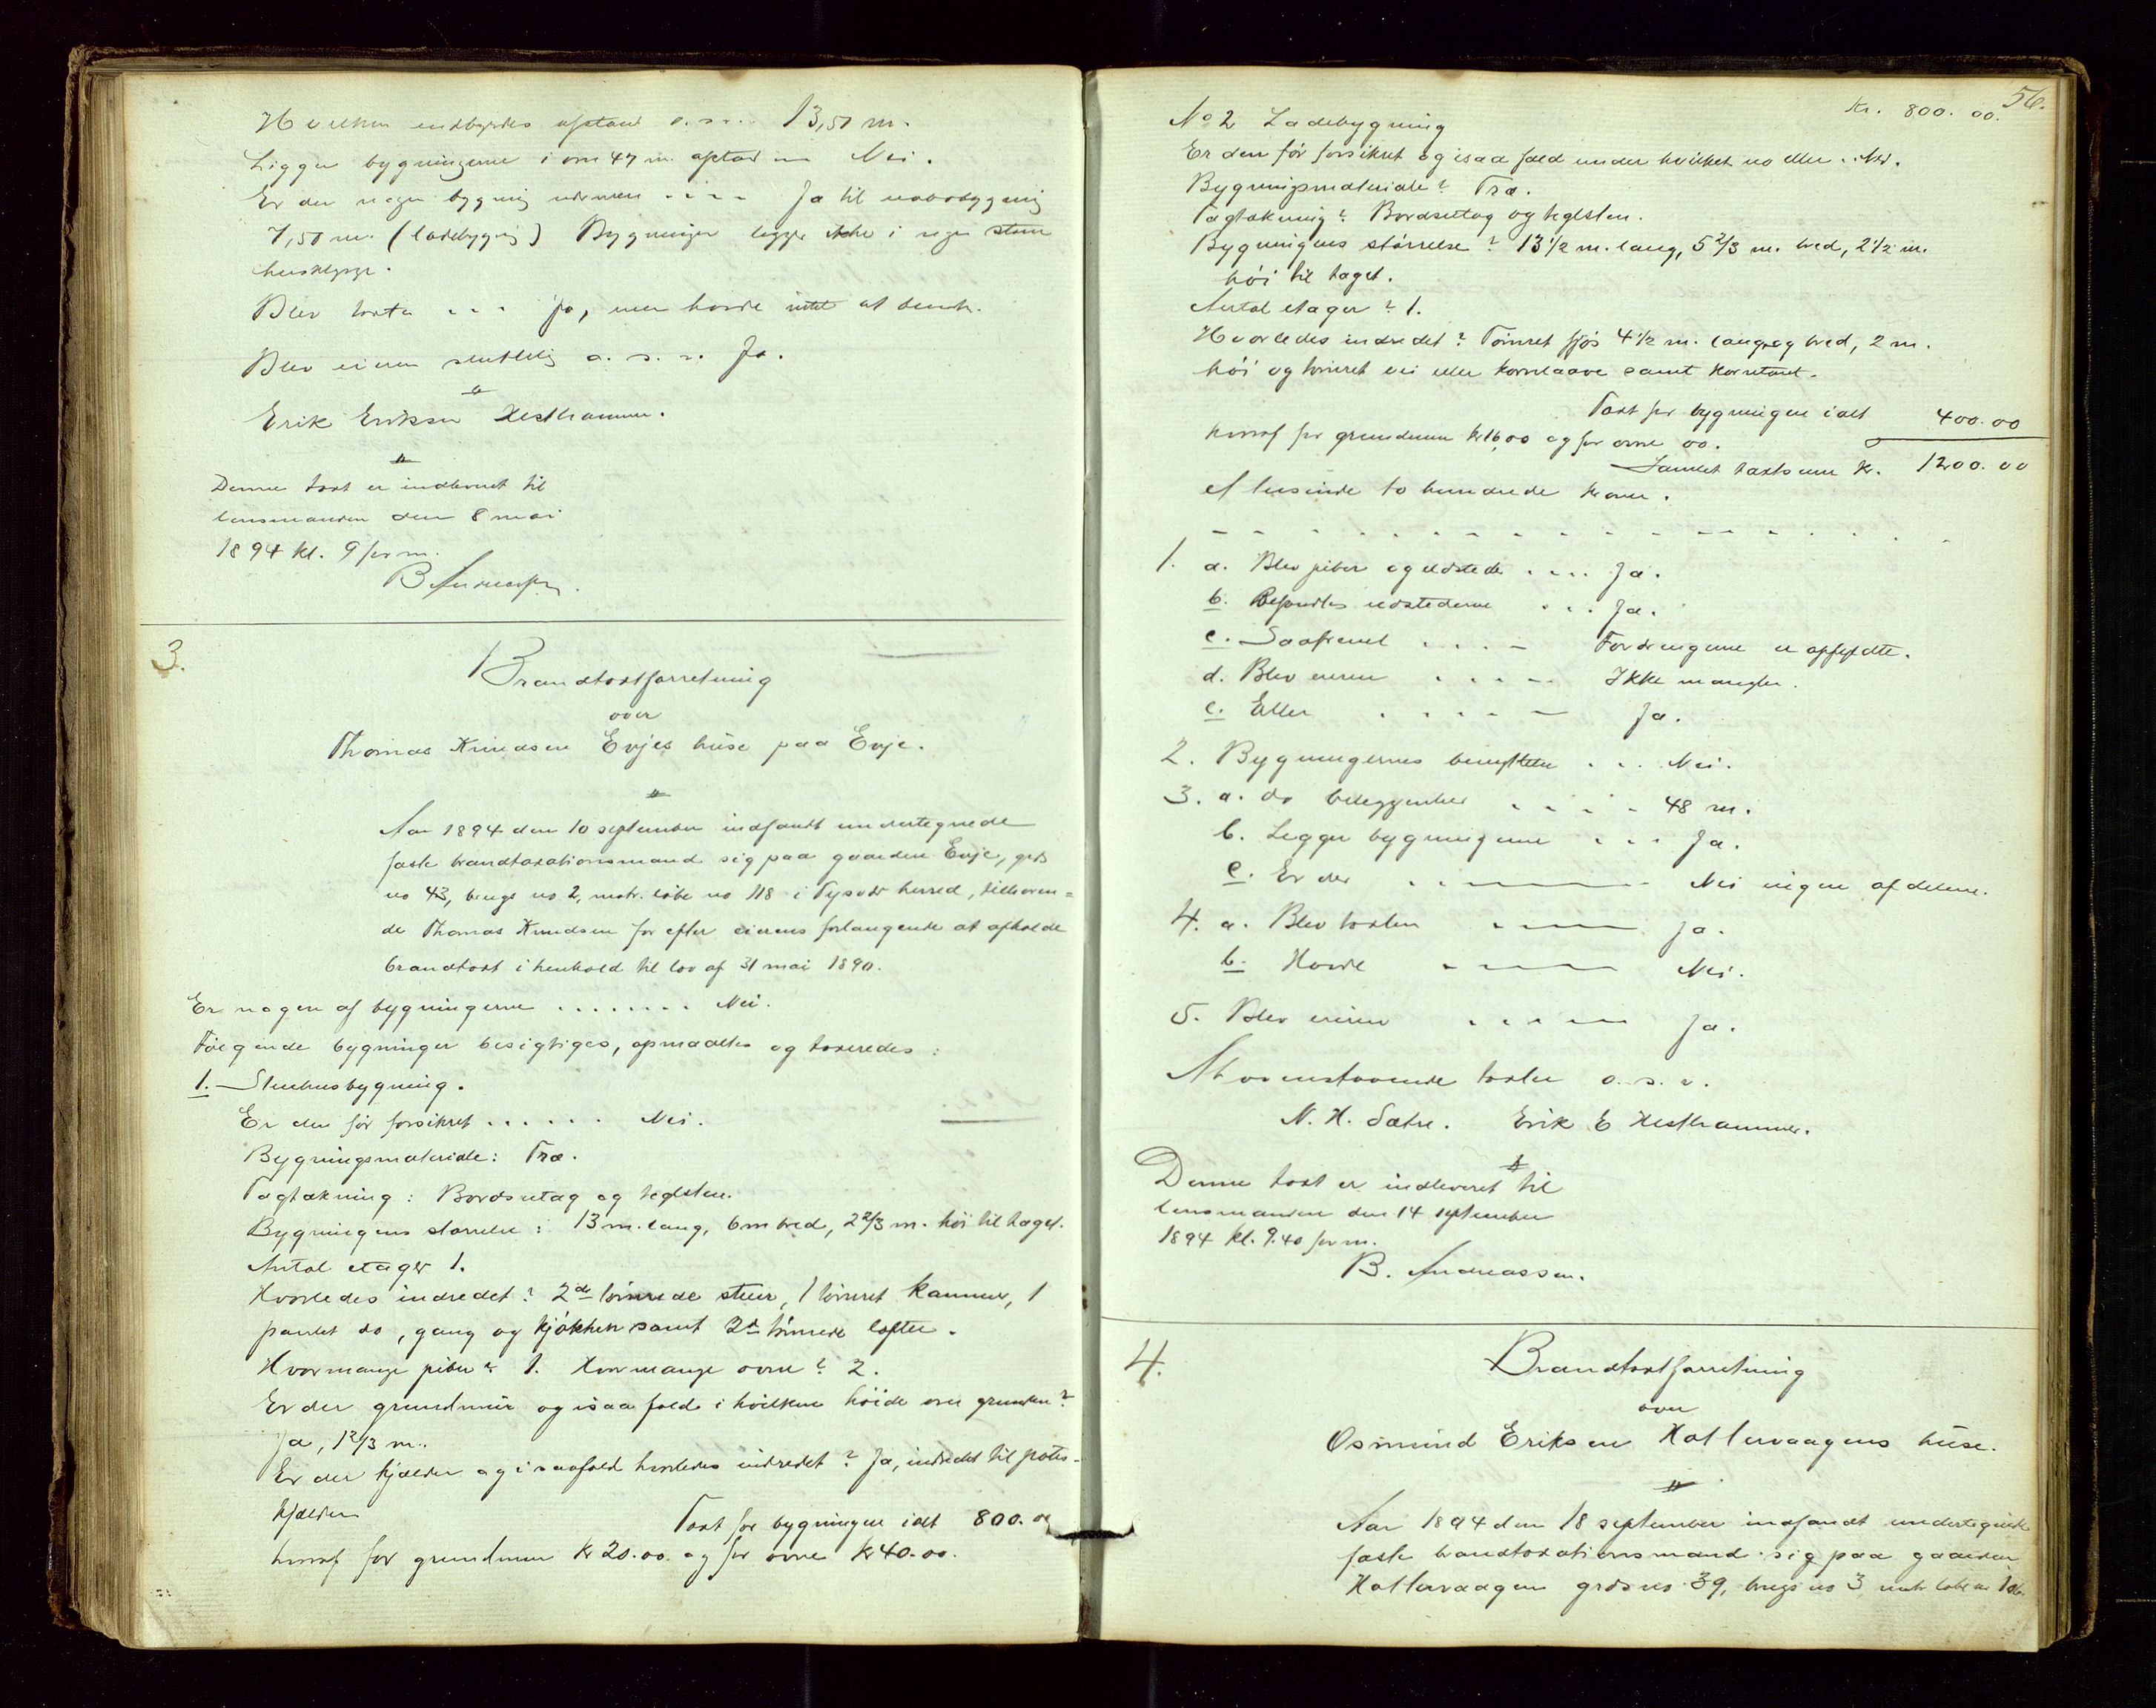 Hvilken indbyrdes afstand o.s.v. 13,50 m.
Ligger bygningerne i om 47 m. afstand Nei.
Er der nogen bygning nærmere . . . . Ja til nabobygning
7,50 m. (ladebygning) Bygningen ligger ikke i nogen større
husklynge.
Blev taxten . . . Ja, men havde intet at bemærke.
Blev eieren sluttelig o. s. v. Ja.
Erik Eriksen Hesthammer.
Denne taxt er indleveret til
lensmanden den 8 mai
1894 kl. 9 form.
B Andreassen.
3.
Brandtaxtforretning
over
Thomas Knudsen Evjes huse paa Evje.
Aar 1894 den 10 september indfandt undertegnede
faste brandtaxationsmænd sig paa gaarden Evje, grds
no 43, brugs no 2, matr. løbe no 118 i Tysvær herred, tilhøren=
de Thomas Knudsen for efter eierens forlangende at afholde
brandtaxt i henhold til lov af 31 mai 1890.
Er nogen af bygningerne . . . . . . . . Nei.
Følgende bygninger besigtiges, opmaaltes og taxeredes:
1. Stuehusbygning.
Er den før forsikret . . . . . . Nei.
Bygningsmateriale: Træ.
Tagtækning: Bordsutag og teglsten.
Bygningens størrelse: 13 m. lang, 6 m bred, 2 2/3 m. høi til taget.
Antal etager 1.
Hvorledes indredet? 2de tømrede stuer, 1 tømret kammer, 1
panlet do, gang og kjøkken samt 2de tømrede lofter.
Hvormange piber? 1. Hvormange ovne? 2.
Er der grundmur og isaafald i hvilken høide over grunden?
Ja, 1 2/3 m.
Er der kjælder og i saafald hvorledes indredet? Ja, indredet til potet-
kjælder
Taxt for bygningen ialt 800. 00
hvoraf for grundmur kr 20.00. og for ovne kr 40.00.
56.
Kr. 800. 00.
No 2 Ladebygning
Er den før forsikret og isaa fald under hvilket no eller . . Nei.
Bygningsmateriale? Træ.
Tagtækning? Bordsutag og teglsten.
Bygningens størrelse? 13 1/2 m. lang, 5 2/3 m. bred, 2 1/2 m.
høi til taget.
Antal etager? 1.
Hvorledes indredet? Tømret fjøs 4 1/2 m. lang og bred, 2 m.
høi og tømret eller kornlaave samt
Taxt for bygningen ialt 400.00
hvoraf for grundmur kr 16,00 og for ovne 00.
Samlet taxtsum kr. 1200.00
et tusinde to hundrede kroner.
1. a. Blev piber og ildsteder . . . . Ja.
b. Befandtes ildstederne . . . Ja.
c. Saafremt . . . . – Fordringerne er opfyldte.
d. Blev eieren . . . . – Ikke mangler.
e. Eller . . . . . – Ja.
2. Bygningernes benyttelse . . . Nei.
3. a. do beliggenhed . . . . . 48 m.
b. Ligger bygningerne . . . Ja.
c. Er der . . – – – – Nei ingen af delene.
4. a. Blev taxten . . – – – Ja.
b. Havde . – – – – Nei.
5. Blev eieren . . . . – Ja.
At ovenstaaende taxter o. s. v.
N. H. Sætre. Erik E Hesthammer.
Denne taxt er indleveret til
lensmanden den 14 september
1894 kl. 9.40 form.
B. Andreassen.
4.
Brandtaxtforretning
over
Osmund Eriksen Hattervaagens huse.
Aar 1894 den 18 september indfandt undertegnede
faste brandtaxationsmænd sig paa gaarden
Hattervaagen grds no 39, brugs no 3 matr løbe no